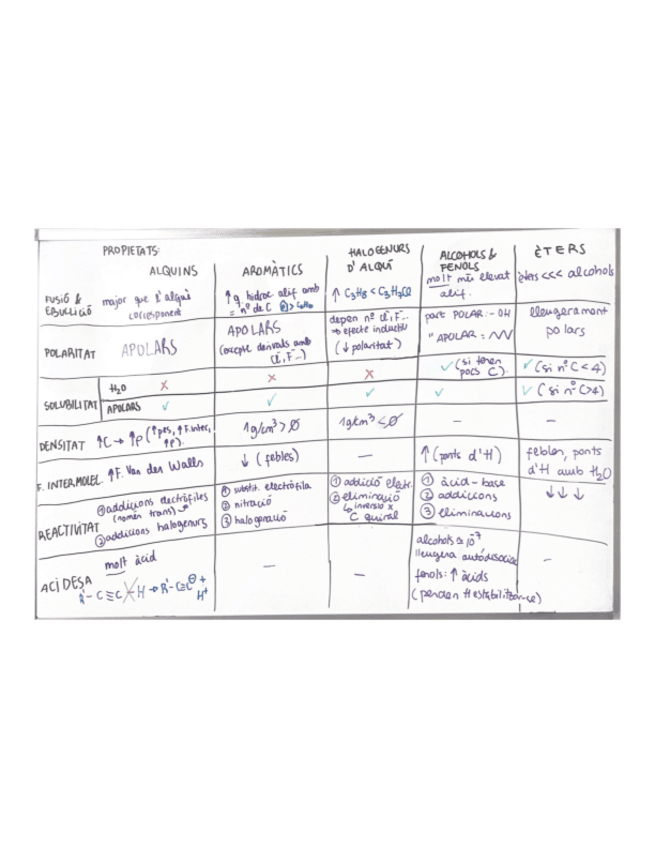 PROPIETATS:
ALQUINS
AROMÀTICS
HALOGENURS
D'ALQUÍ
ALCOHOLS &
FENOLS
ÈTERS
FUSIÓ &
EBULLICIÓ
major que l'alquè
corresponent
↑ q hidroc. alif amb
= nº de C
↑ C3H8 < C3H7Cl
molt més elevat
alif.
èters <<< alcohols
POLARITAT
APOLARS
APOLARS
(excepte derivats amb
Cl, F...)
depèn nº Cl, F...
→ efecte inductiu
(↓ polaritat)
part POLAR: -OH
" APOLAR:
lleugerament
polars
SOLUBILITAT
H2O
✗
✗
✗
✓ (si tenen
pocs C)
✓ (si nº C < 4)
APOLARS
✓
✓
✓
✓
✓ (si nº C > 4)
DENSITAT
↑C → ↑ρ (↑pes, ↑F.inter,
1g/cm³ > Ø
1g/cm³ < Ø
–
–
F. INTERMOLEC
↑F. Van der Walls
↓ (febles)
–
↑ (ponts d'H)
febles, ponts
d'H amb H2O
REACTIVITAT
① addicions electròfiles
(només trans)
② addicions halogenurs
① substit. electròfila
② nitració
③ halogenació
① addició electr.
② eliminació
↳ inversió x
C quiral
① àcid-base
② addicions
③ eliminacions
↓↓↓
ACIDESA
molt àcid
R'-C≡C-H → R'-C≡C⊖ +
H+
–
–
alcohols ≈ 10⁻⁷
lleugera autodisociac
fenols: ↑ àcids
–